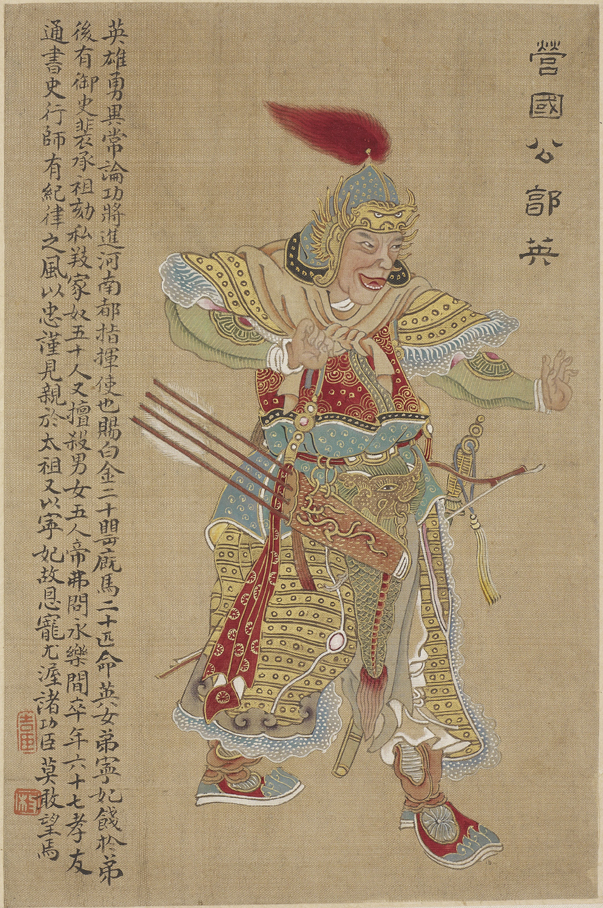 營國公郭英
英雄勇異常論功將進河南都指揮使也賜白金二十罌廐馬二十匹命英女弟寧妃餞於弟
後有御史裴承祖劾私殺家奴五十人又擅殺男女五人帝弗問永樂間卒年六十七孝友
通書史行師有紀律之風以忠謹見親於太祖又以寧妃故恩寵尤渥諸功臣莫敢望焉